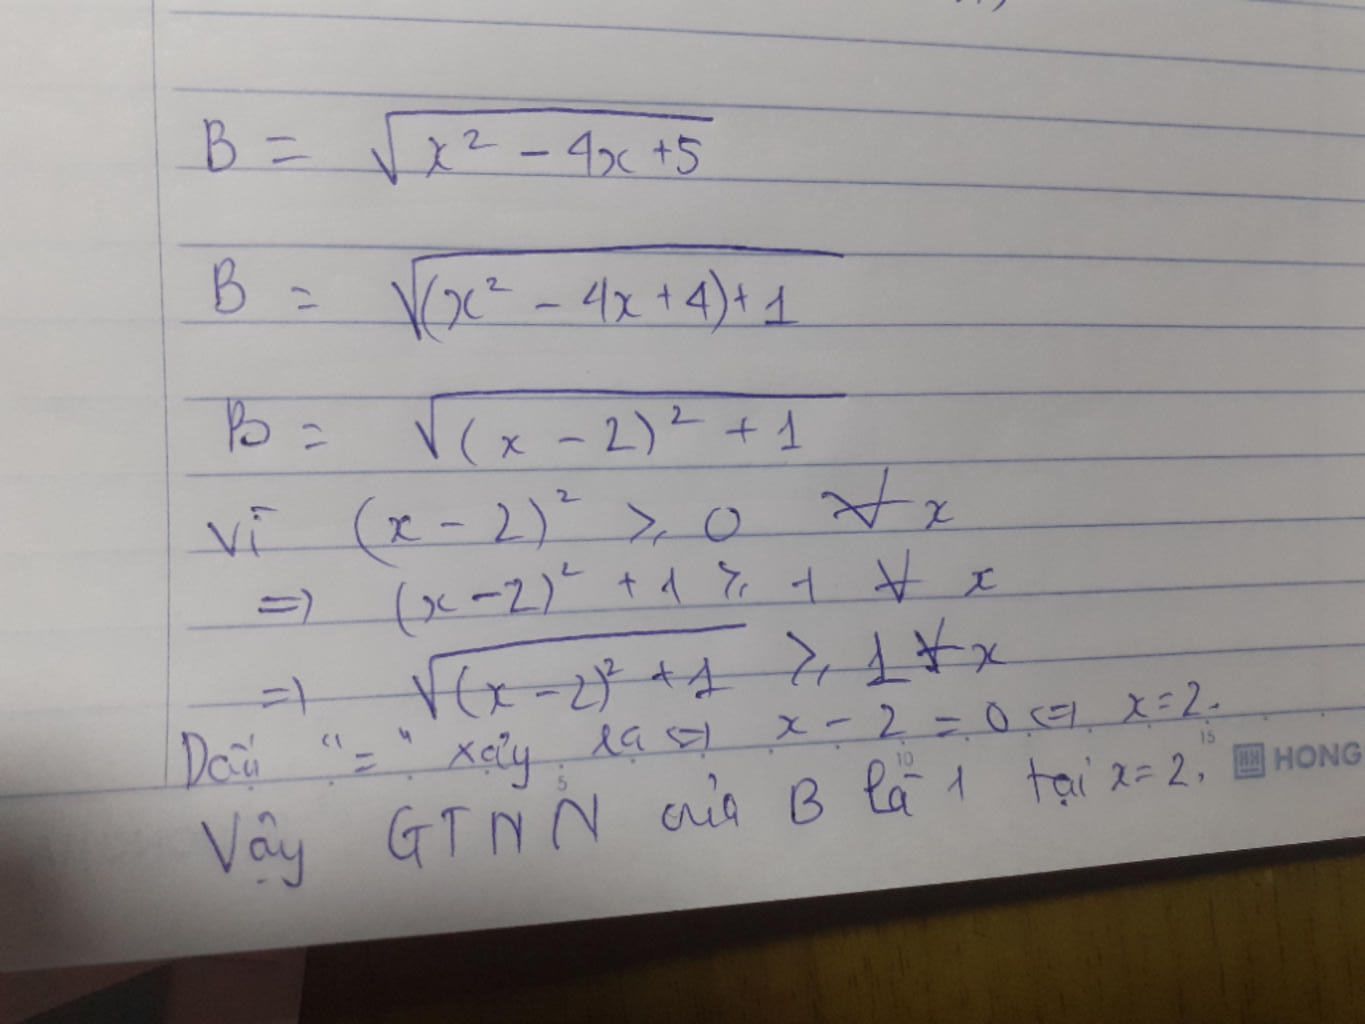 B = √(x² - 4x + 5)
B = √((x² - 4x + 4) + 1)
B = √((x - 2)² + 1)
Vì (x - 2)² ≥ 0 ∀ x
=> (x - 2)² + 1 ≥ 1 ∀ x
=> √((x - 2)² + 1) ≥ 1 ∀ x
Dấu "=" xảy ra <=> x - 2 = 0 <=> x = 2.
5 10 15 HONG
Vậy GTNN của B là 1 tại x = 2.